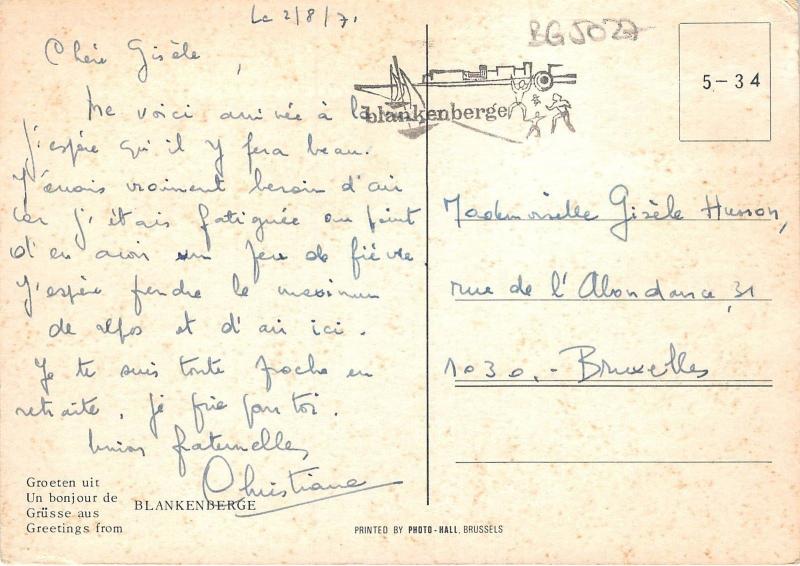 Le 2/8/71
BG5027
Chère Gisèle,
5-34
blankenberge
Me voici arrivée à la
j'espère qu'il y fera beau.
J'avais vraiment besoin d'air
car j'étais fatiguée au point
d'en avoir un peu de fièvre.
J'espère prendre le maximum
de repos et d'air ici.
Je te suis toute proche en
retraite, je prie pour toi.
Union fraternelle,
Christiane
Mademoiselle Gisèle Husson,
rue de l'Abondance, 31
1030.- Bruxelles
Groeten uit
Un bonjour de
Grüsse aus
Greetings from
BLANKENBERGE
PRINTED BY PHOTO-HALL, BRUSSELS